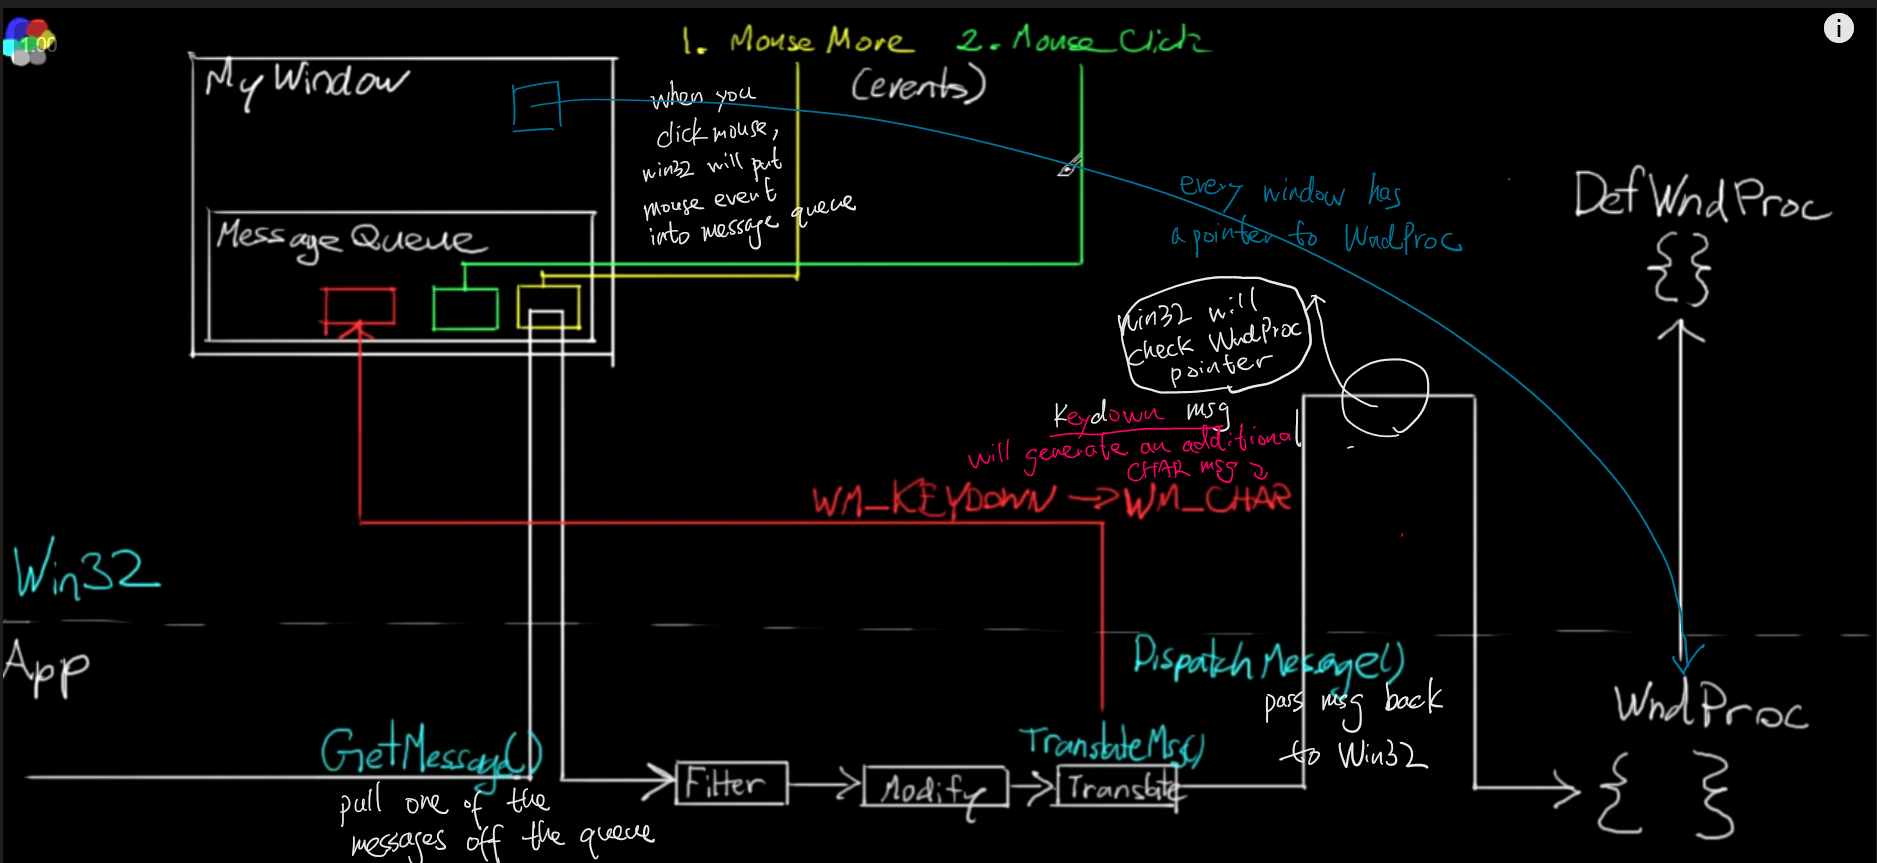 1.00
1. Mouse Move
2. Mouse Click
(events)
i
My Window
when you
click mouse,
win32 will put
mouse event
into message queue
Message Queue
every window has
a pointer to WndProc
DefWndProc
{ }
win32 will
check WndProc
pointer
Keydown msg
will generate an additional
CHAR msg
WM_KEYDOWN → WM_CHAR
Win32
App
DispatchMessage()
pass msg back
to Win32
WndProc
{ }
GetMessage()
pull one of the
messages off the queue
Filter
Modify
TranslateMsg()
Translate